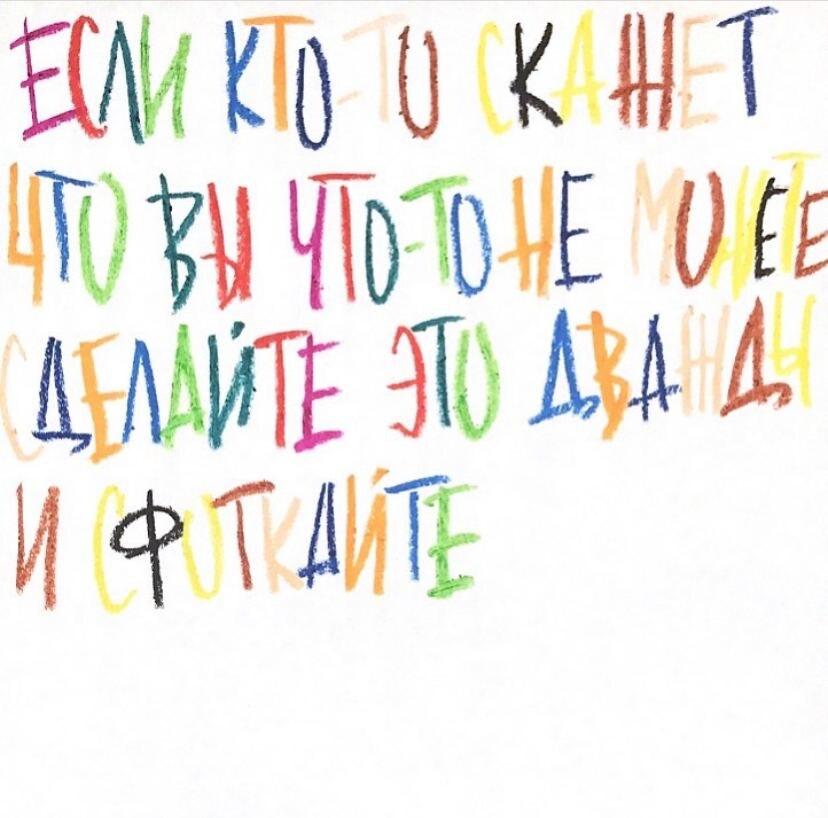 ЕСЛИ КТО-ТО СКАЖЕТ
ЧТО ВЫ ЧТО-ТО НЕ МОЖЕТЕ
СДЕЛАЙТЕ ЭТО ДВАЖДЫ
И СФОТКАЙТЕ